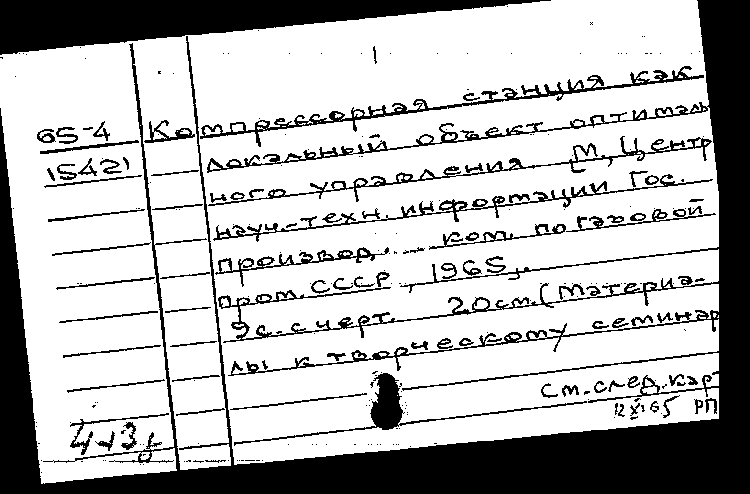 65-4 Компрессорная станция как
15421 локальный объект оптималь
ного управления. [М, Центр
науч.-техн. информации Гос.
производ. ком. по газовой
пром. СССР, 1965].
9с. с черт. 20см. (Материа-
лы к творческому семинар
См. след. кар
12 XI 65 РП